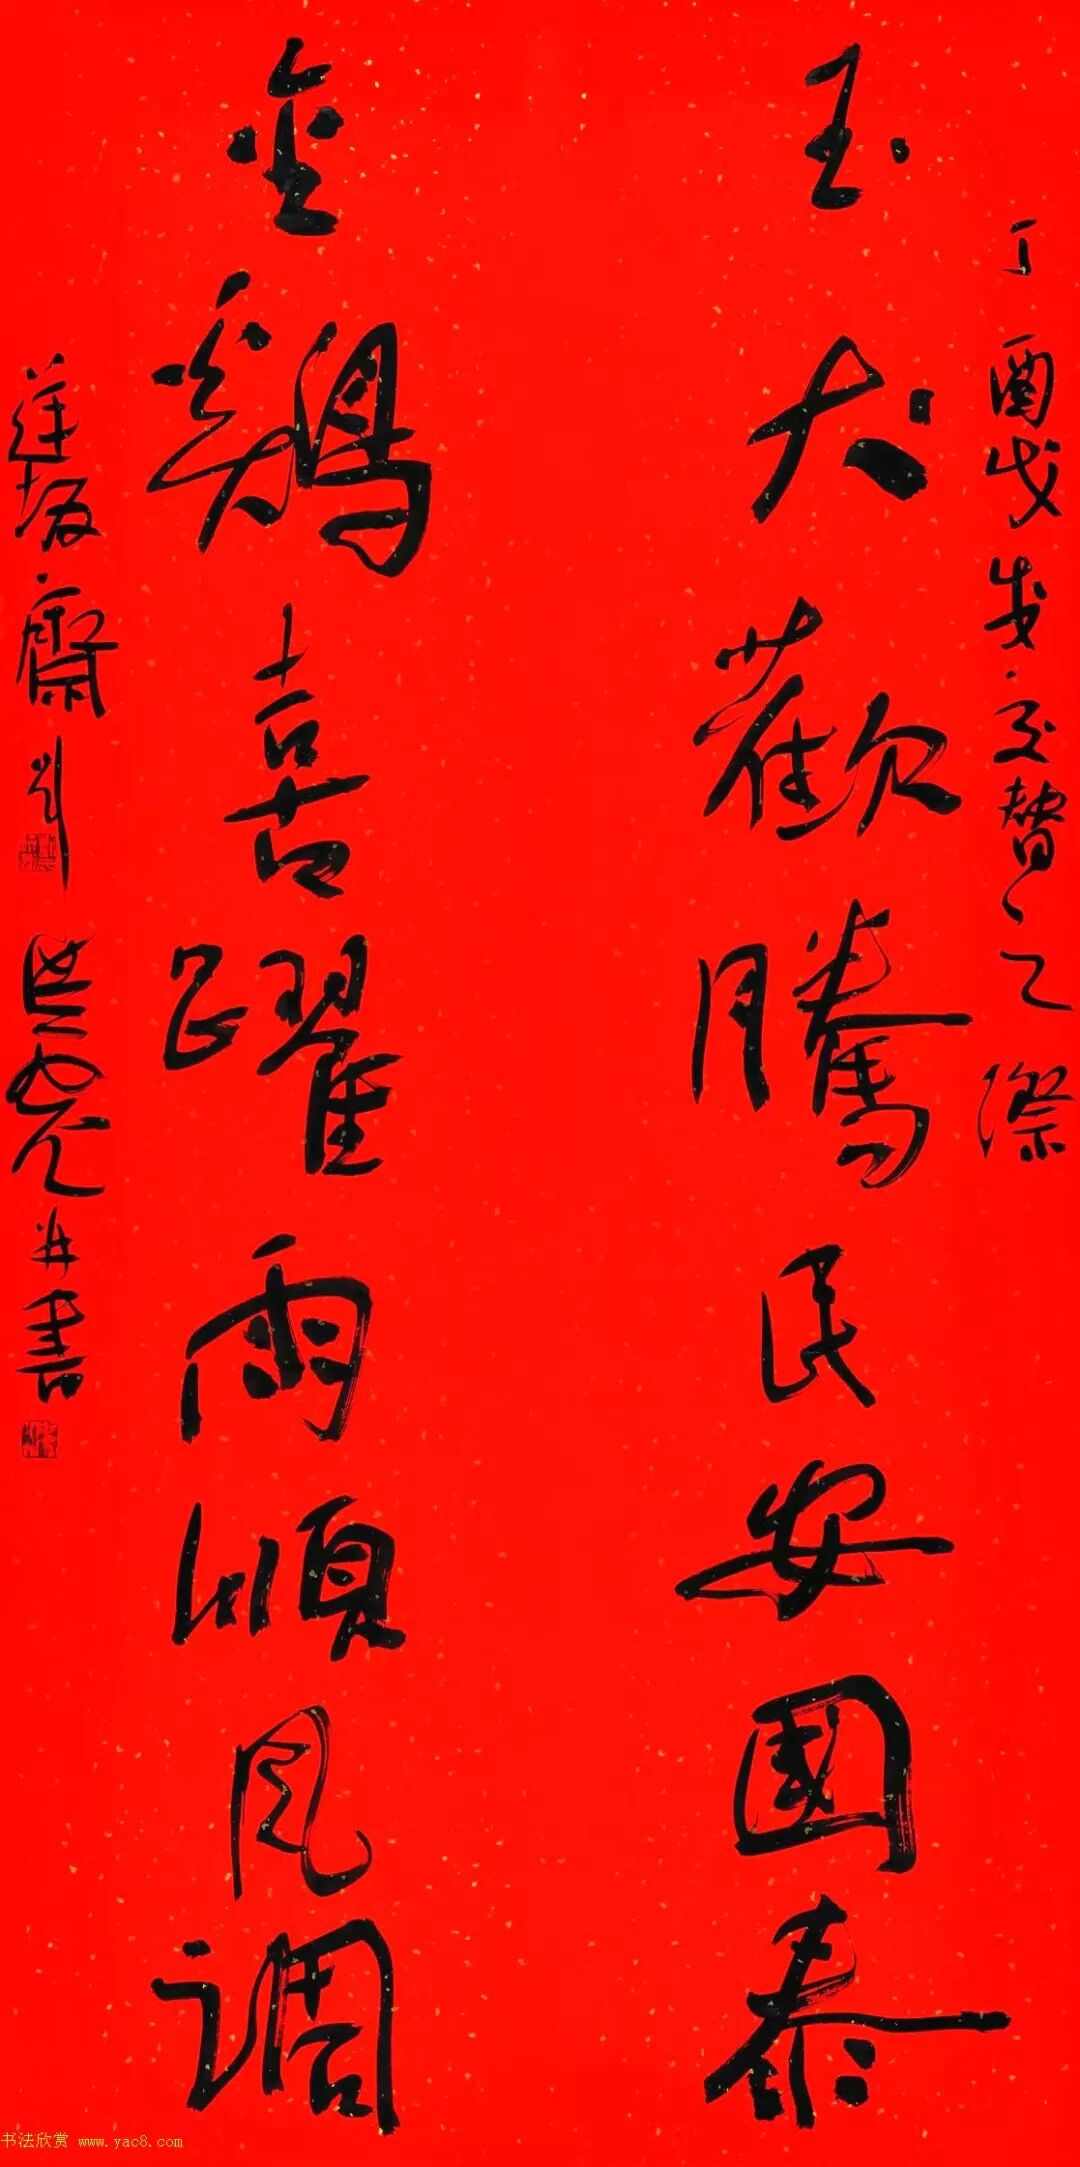 丁酉戊戌交替之際
玉犬歡騰民安國泰
金鷄喜躍雨順風調
齋劉 并書
书法欣赏 www.yac8.com